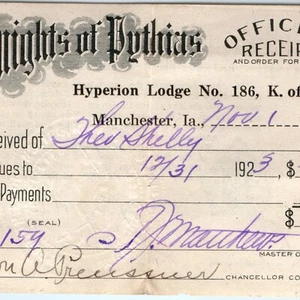 Knights of Pythias
OFFICI
RECEIP
AND ORDER FOR
Hyperion Lodge No. 186, K. of
Manchester, Ia., Nov 1
ceived of Theo Shelly
ues to 12/31 1923 $
Payments $
(SEAL)
159
MASTER O
CHANCELLOR CO